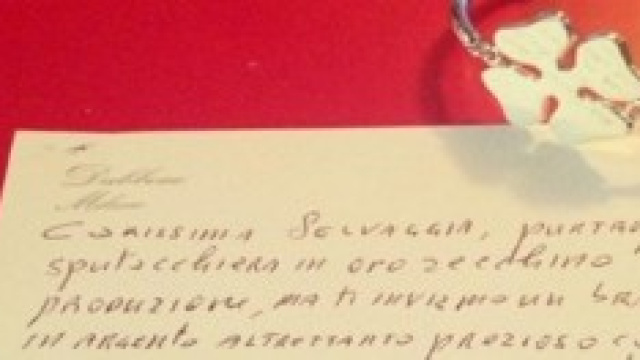 Milano
CARISSIMA SELVAGGIA, PURTRO
SPUTACCHIERA IN ORO ZECCHINO
PRODUZIONE, MA TI INVIAMO UN BRA
IN ARGENTO ALTRETTANTO PREZIOSO C